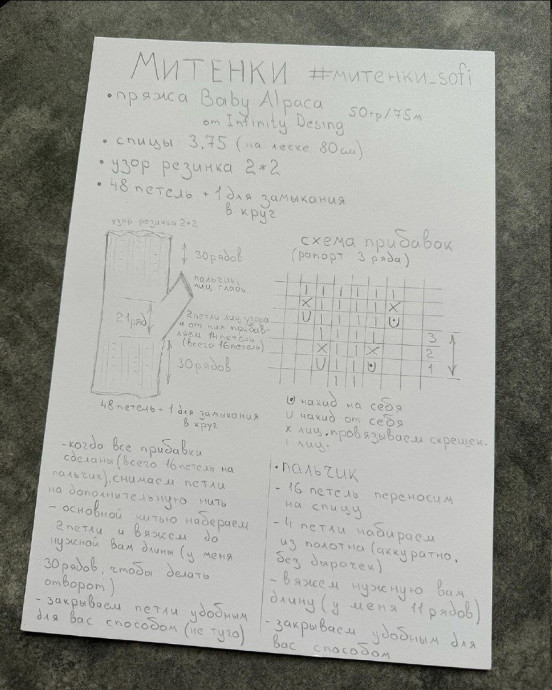 Митенки #митенки_sofi
• пряжа Baby Alpaca 50гр/75м
от Infinity Desing
• спицы 3,75 (на леске 80см)
• узор резинка 2*2
• 48 петель + 1 для замыкания
в круг
узор резинка 2*2
30 рядов
пальчик,
лиц. гладь
21 ряд
2 петли лиц. узора
и от них прибав-
ляем 14 петель
(всего 16 петель)
30 рядов
48 петель + 1 для замыкания
в круг
схема прибавок
(рапорт 3 ряда)
3
2
1
накид на себя
U накид от себя
x лиц. провязываем скрещен.
ı лиц.
- когда все прибавки
сделаны (всего 16 петель на
пальчик), снимаем петли
на дополнительную нить
- основной нитью набераем
2 петли и вяжем до
нужной вам длины (у меня
30 рядов, чтобы делать
отворот)
- закрываем петли удобным
для вас способом (не туго)
• пальчик
- 16 петель переносим
на спицу
- 4 петли набираем
из полотна (аккуратно,
без дырочек)
- вяжем нужную вам
длину (у меня 11 рядов)
- закрываем удобным для
вас способом